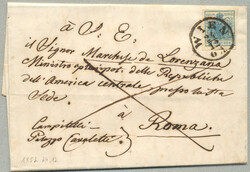 à S. E.
il Signor Marchese de Lorenzana
Ministro plenipot. delle Repubbliche
dell'America centrale presso la sta
Sede.
à
Roma.
Campitelli
Palazzo Cavaletti
WIEN